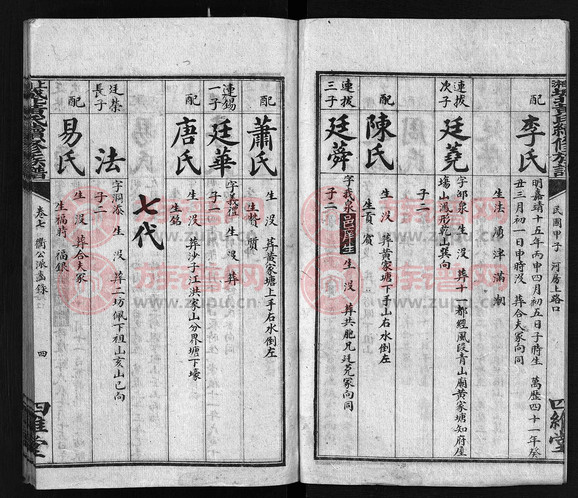 民國甲子 河房上路口
四維堂
配
李氏
明嘉靖十五年丙申四月初五日子時生 萬歷四十一年癸
丑三月初一日申時沒 葬合夫冢向同
生 法 湯 津 滿 潮
連拔
次子
廷堯
字邱泉 生 沒 葬十一都經風段青山廟黃家塘知府屋
塲山灣形乾山巽向
子二
配
陳氏
生 沒 葬黃家塘下手山右水倒左
生 貢 賓
連拔
三子
廷舜
字義泉邑庠生 生 沒 葬共兆兄廷堯冢向同
子二
配
蕭氏
生 沒 葬黃家塘上手右水倒左
生 贊 質
連錫
一子
廷華
字義恒 生 沒 葬
子一
配
唐氏
生 沒 葬沙子江洪家山分界塘下壕
生 銘
七代
廷榮
長子
法
字洞泰 生 沒 葬二坊佩下祖山亥山巳向
子二
配
易氏
生 沒 葬合夫冢
生 福時 福銀
卷七 衢公派齒錄
四
四維堂